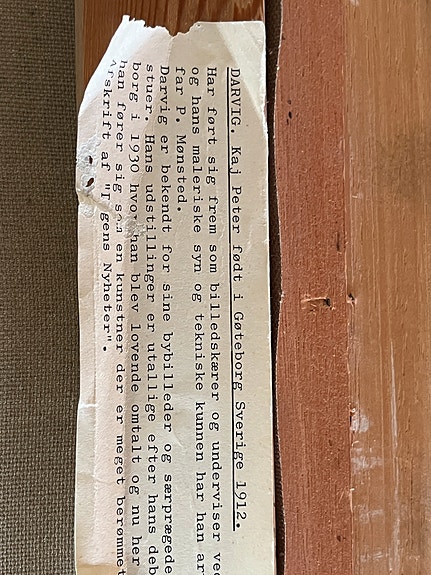 DARVIG. Kaj Peter født i Gøteborg Sverige 1912.
Har ført sig frem som billedskærer og underviser
og hans maleriske syn og tekniske kunnen har han
far P. Mønsted.
Darvig er bekendt for sine bybilleder og særprægede
stuer. Hans udstillinger er utallige efter hans
borg i 1930 hvor han blev lovende omtalt og nu her
han fører sig som en kunstner der er meget berømmet
Afskrift af "Dagens Nyheter".